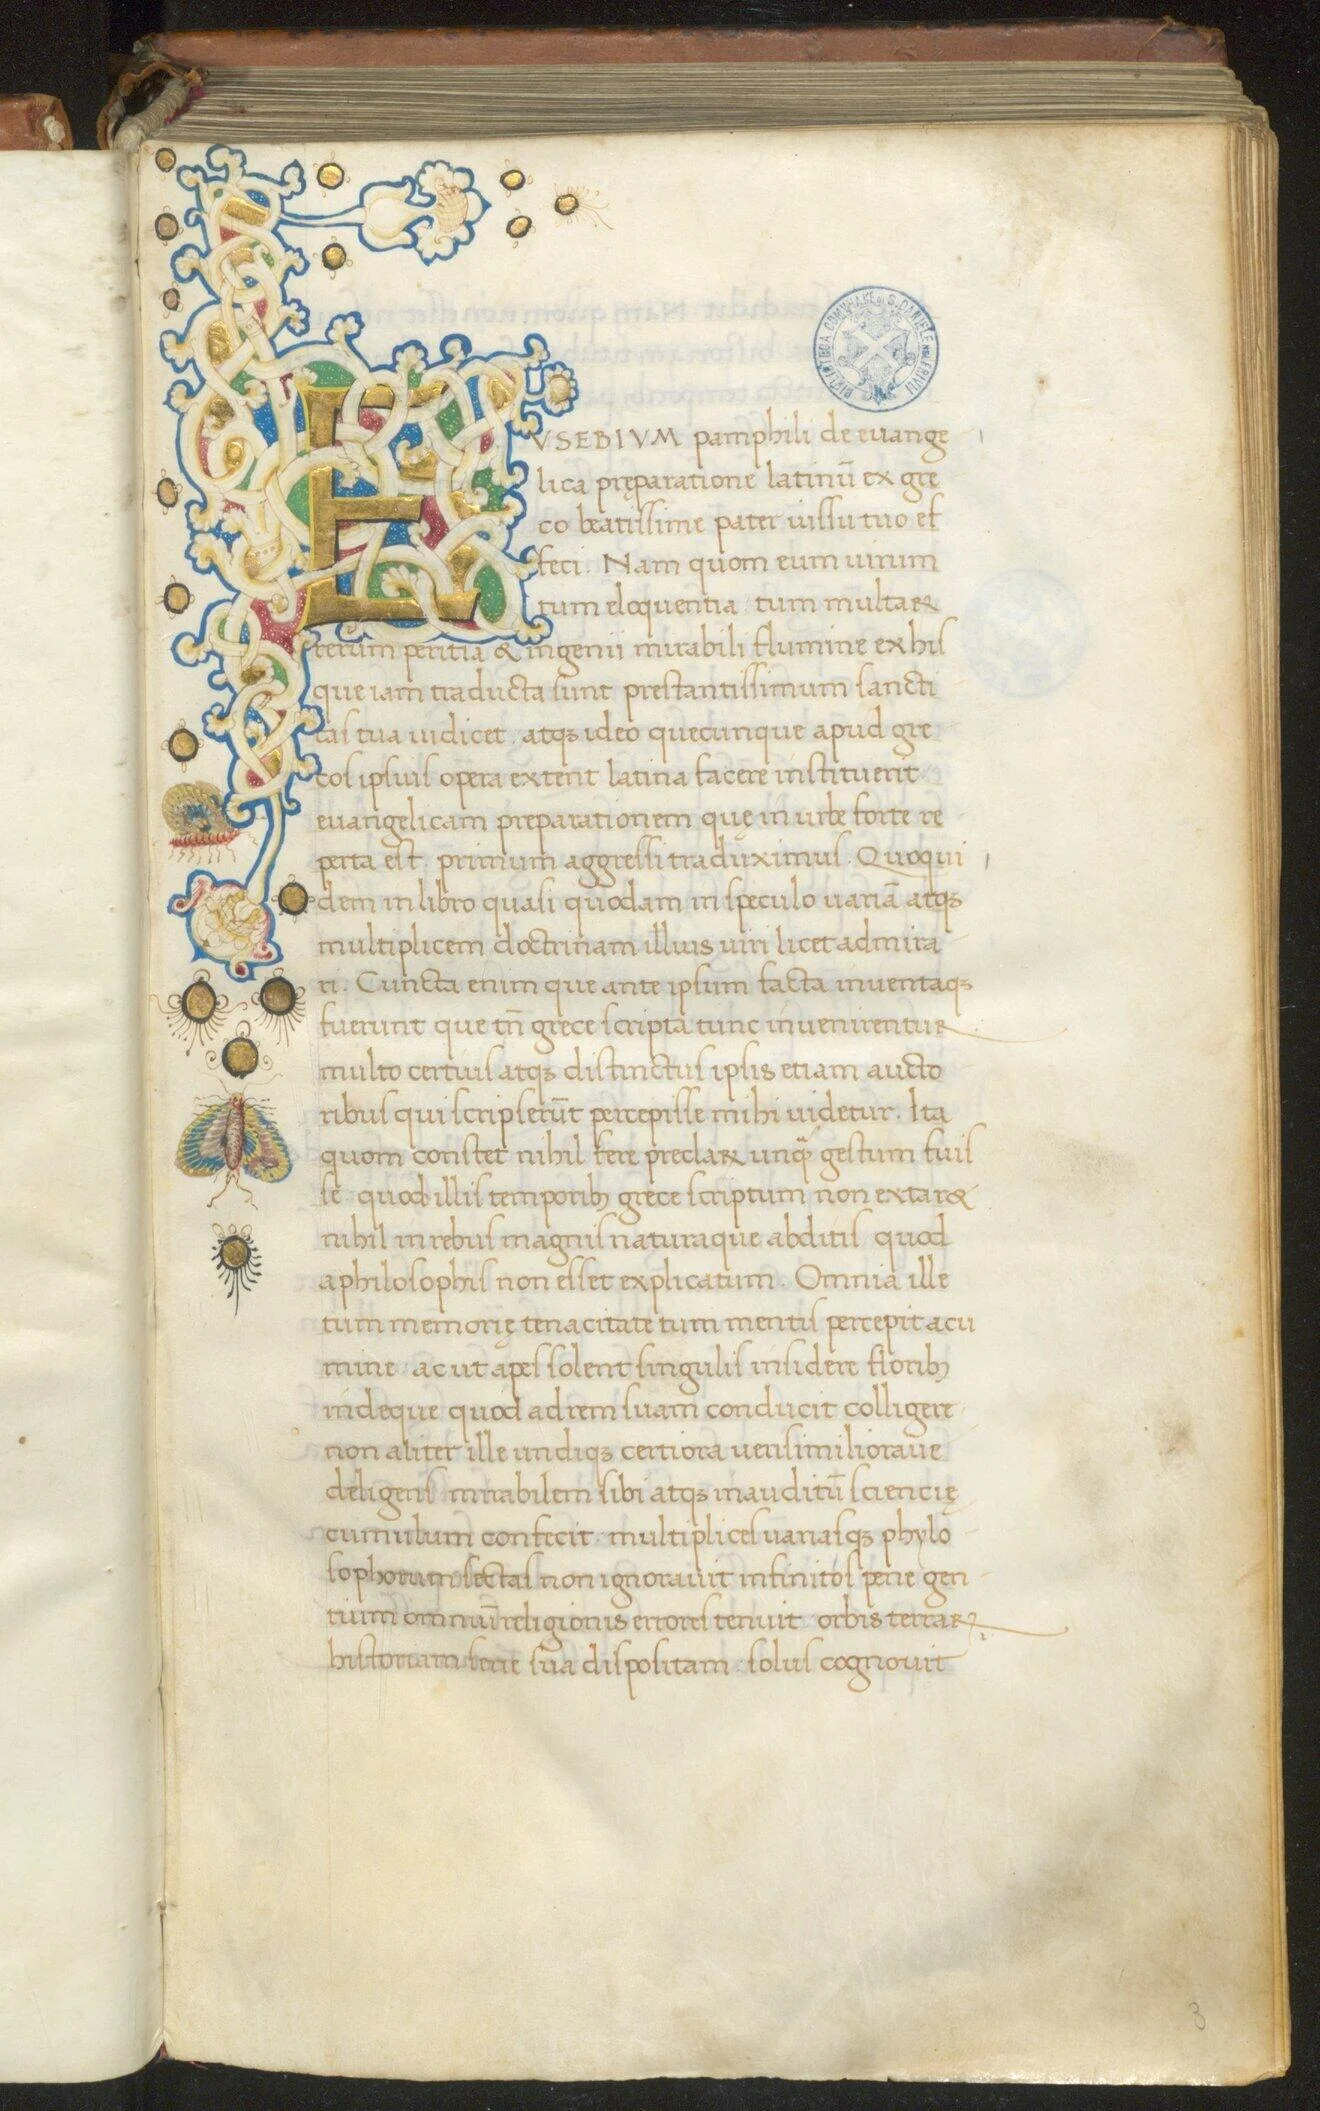 BIBLIOTECA COMUNALE DI S. DANIELE NEL FRIULI
EVSEBIVM pamphili de euange
lica pręparatione latinū ex gre
co beatissime pater iussu tuo ef
feci. Nam quom eum uirum
tum eloquentia tum multaꝝ
rerum peritia & ingenii mirabili flumine ex his
que iam traducta sunt prestantissimum sancti
tas tua iudicet. atqꝫ ideo quecunque apud gre
cos ipsius opera extent latina facere instituerit
euangelicam preparationem quę in urbe forte re
perta est. primum aggressi traduximus. Quo qui
dem in libro quasi quodam in speculo uariā atqꝫ
multiplicem doctrinam illius uiri licet admira
ri. Cuncta enim que ante ipsum facta inuentaqꝫ
fuerunt que tn̄ grece scripta tunc inuenirentur
multo certius atqꝫ distinctus ipsis etiam aucto
ribus qui scripserūt percepisse mihi uidetur. Ita
quom constet nihil fere preclaꝝ unqᷓ gestum fuis
se quod illis temporibꝫ grece scriptum non extar&
nihil in rebus magnis naturaque abditis quod
a philosophis non esset explicatum. Omnia ille
tum memorię tenacitate tum mentis percepit acu
mine. ac ut apes solent singulis insidere floribꝫ
indeque quod ad rem suam conducit colligere
non aliter ille undiqꝫ certiora uerisimilioraue
deligens mirabilem sibi atqꝫ inauditū sciencię
cumulum confecit. multiplices uariasqꝫ phylo
sophorum sectas non ignorauit infinitos pene gen
tium omniū religionis errores tenuit orbis terraꝝ
historiam serie sua dispositam. solus cognouit
3